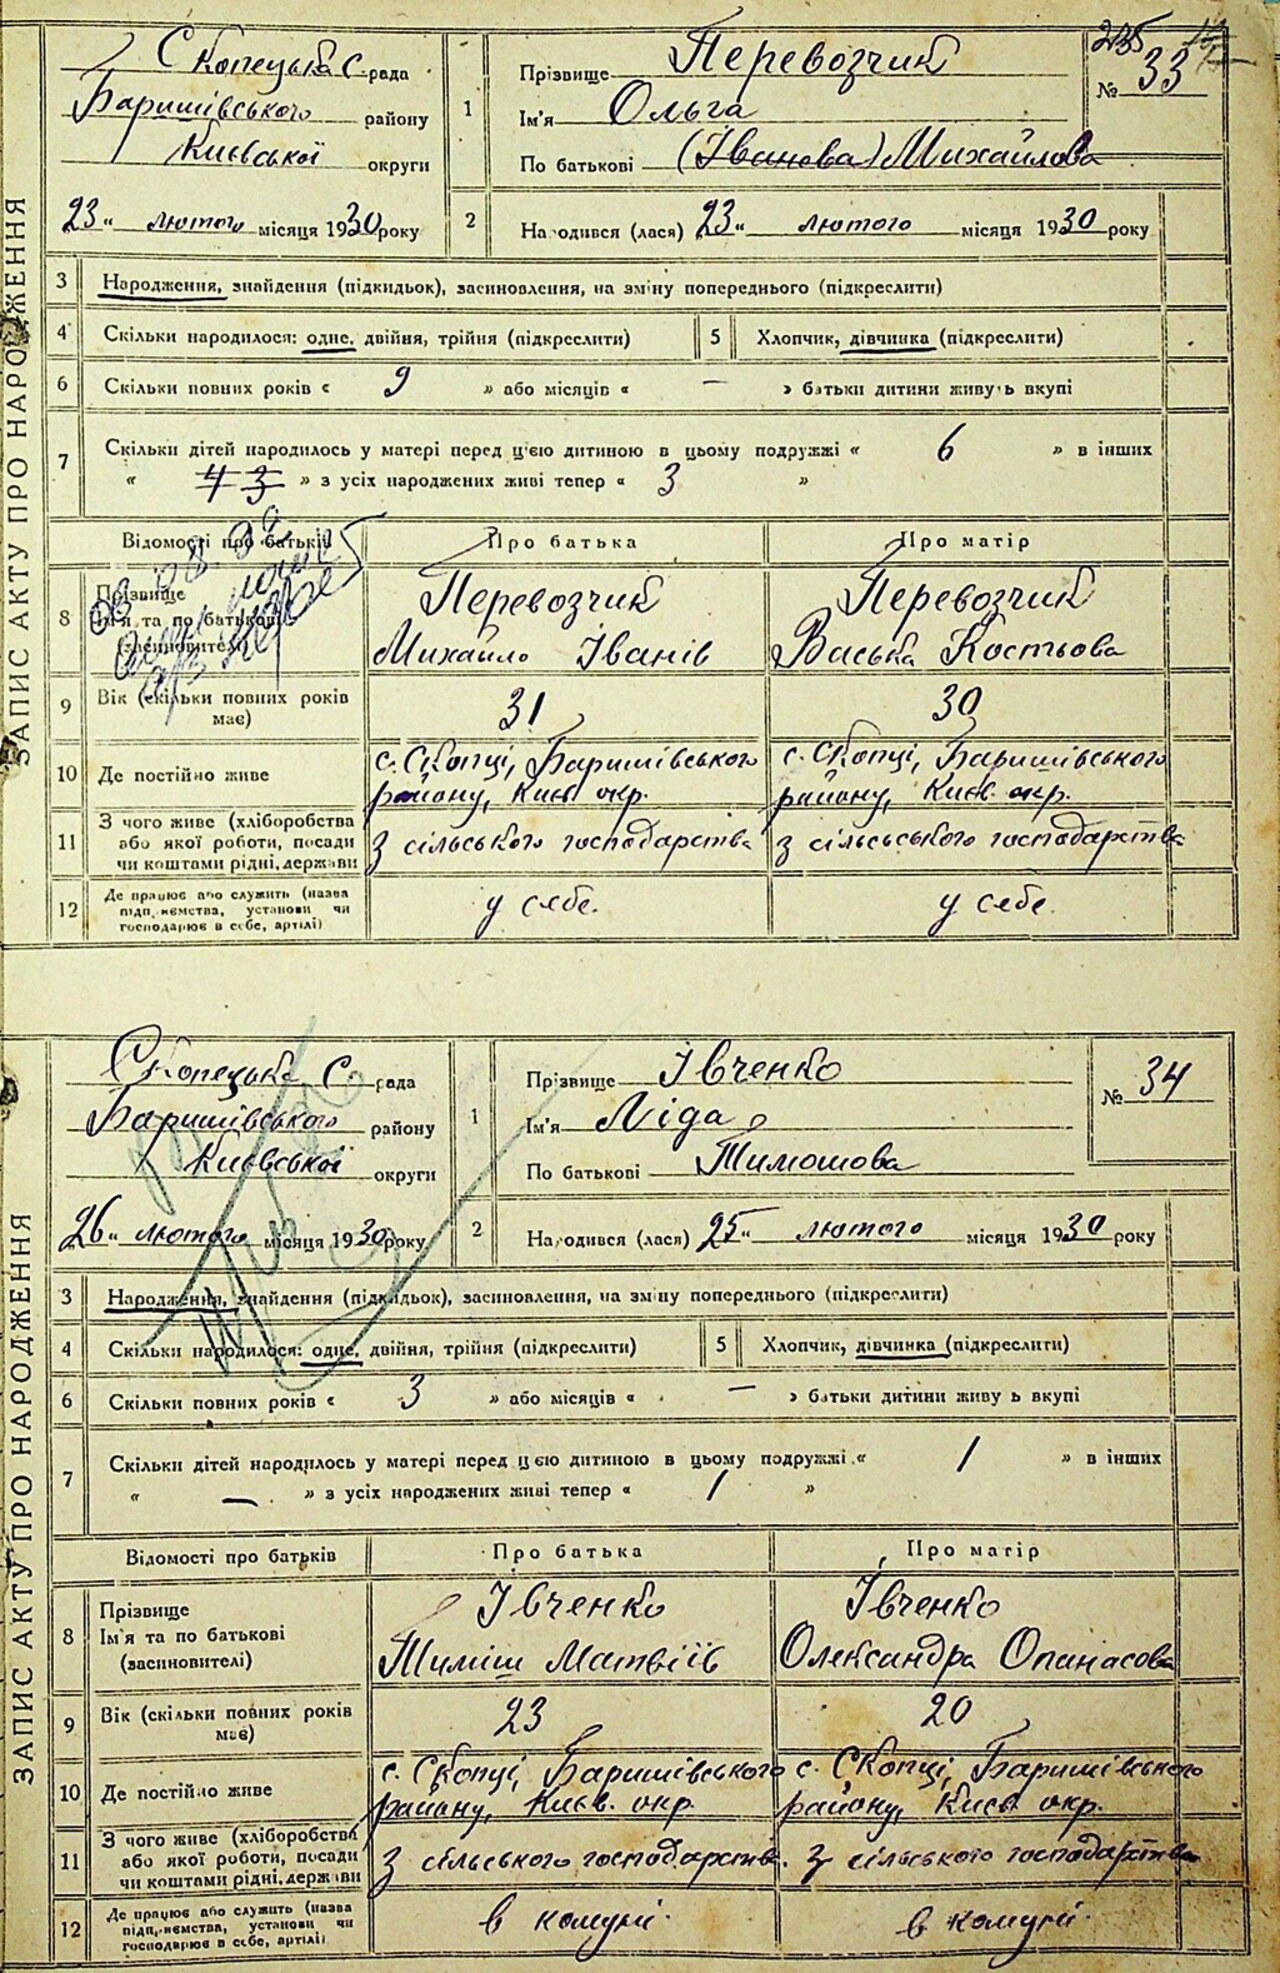 ЗАПИС АКТУ ПРО НАРОДЖЕННЯ
Скопецька с. рада
Баришівського району
Київської округи
23 " лютого місяця 1930 року
1
Прізвище Перевозчик
Ім'я Ольга
По батькові (Іванова) Михайлова
235
№ 33
2
Народився (лася) 23 " лютого місяця 1930 року
3 Народження, знайдення (підкидьок), засиновлення, на зміну попереднього (підкреслити)
4 Скільки народилося: одне, двійня, трійня (підкреслити) 5 Хлопчик, дівчинка (підкреслити)
6 Скільки повних років « 9 » або місяців « — » батьки дитини живуть вкупі
7 Скільки дітей народилось у матері перед цією дитиною в цьому подружжі « 6 » в інших
« 4 3 » з усіх народжених живі тепер « 3 »
Відомості про батьків Про батька Про матір
8 Прізвище Ім'я та по батькові (засиновителі)
Перевозчик Перевозчик
Михайло Іванів Васька Костьова
9 Вік (скільки повних років має) 31 30
10 Де постійно живе
с. Скопці, Баришівського с. Скопці, Баришівського
району, Київ. окр. району, Київ. окр.
11 З чого живе (хліборобства або якої роботи, посади чи коштами рідні, держави
З сільського господарства З сільського господарства
12 Де працює або служить (назва підприємства, установи чи господарює в себе, артілі)
у себе. у себе.
ЗАПИС АКТУ ПРО НАРОДЖЕННЯ
Скопецька с. рада
Баришівського району
Київської округи
26 " лютого місяця 1930 року
1
Прізвище Івченко
Ім'я Ліда
По батькові Тимошова
№ 34
2
Народився (лася) 25 " лютого місяця 1930 року
3 Народження, знайдення (підкидьок), засиновлення, на зміну попереднього (підкреслити)
4 Скільки народилося: одне, двійня, трійня (підкреслити) 5 Хлопчик, дівчинка (підкреслити)
6 Скільки повних років « 3 » або місяців « — » батьки дитини живуть вкупі
7 Скільки дітей народилось у матері перед цією дитиною в цьому подружжі « 1 » в інших
« — » з усіх народжених живі тепер « 1 »
Відомості про батьків Про батька Про матір
8 Прізвище Ім'я та по батькові (засиновителі)
Івченко Івченко
Тиміш Матвіїв Олександра Опанасова
9 Вік (скільки повних років має) 23 20
10 Де постійно живе
с. Скопці, Баришівського с. Скопці, Баришівського
району, Київ. окр. району, Київ. окр.
11 З чого живе (хліборобства або якої роботи, посади чи коштами рідні, держави
З сільського господарства. З сільського господарства
12 Де працює або служить (назва підприємства, установи чи господарює в себе, артілі)
в комуні. в комуні.